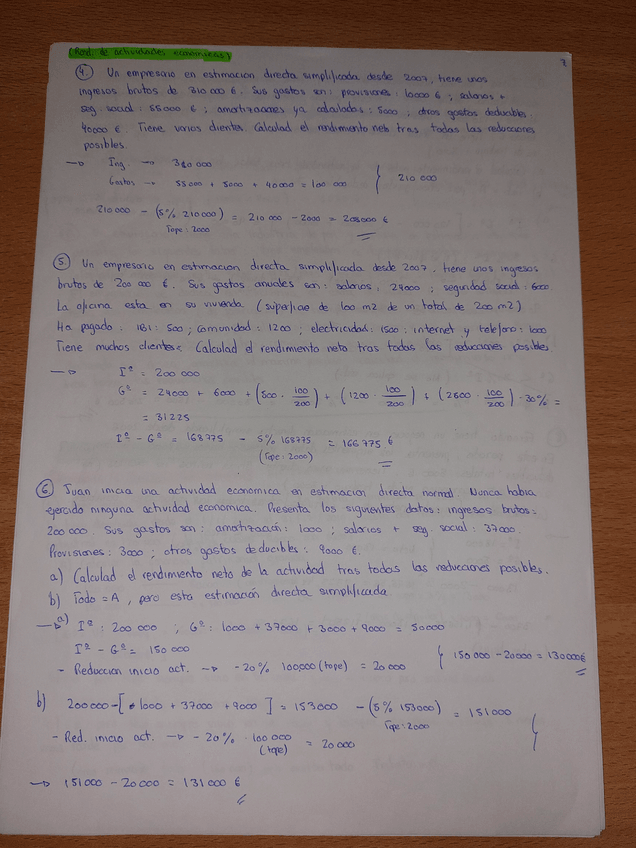 (Rend. de actividades económicas)
2
4. Un empresario en estimación directa simplificada desde 2007, tiene unos
ingresos brutos de 310 000 €. Sus gastos son: provisiones: 10000 €; salarios +
seg. social: 55000 €; amortizaciones ya calculadas: 5000; otros gastos deducibles:
40000 €. Tiene varios clientes. Calculad el rendimiento neto tras todas las reducciones
posibles.
→ Ing. → 310 000
Gastos → 55000 + 5000 + 40000 = 100 000 } 210 000
210 000 - (5% 210 000) = 210 000 - 2000 = 208000 €
Tope: 2000
5. Un empresario en estimación directa simplificada desde 2007, tiene unos ingresos
brutos de 200 000 €. Sus gastos anuales son: salarios, 24000; seguridad social: 6000
La oficina esta en su vivienda (superficie de 100 m2 de un total de 200 m2)
Ha pagado: IBI: 500; comunidad: 1200; electricidad: 1500; internet y telefono: 1000
Tiene muchos clientes. Calculad el rendimiento neto tras todas las reducciones posibles.
→ Iº = 200 000
Gº = 24000 + 6000 + (500 · 100/200) + (1200 · 100/200) + (2500 · 100/200) · 30% =
= 31225
Iº - Gº = 168775 - 5% 168775 = 166775 €
(Tope: 2000)
6. Juan inicia una actividad economica en estimación directa normal. Nunca habia
ejercido ninguna actividad economica. Presenta los siguientes datos: ingresos brutos:
200 000. Sus gastos son: amortización: 1000; salarios + seg. social: 37000.
Provisiones: 3000; otros gastos deducibles: 9000 €.
a) Calculad el rendimiento neto de la actividad tras todas las reducciones posibles.
b) Todo = A, pero esta estimación directa simplificada
→ a) Iº: 200 000 ; Gº: 1000 + 37000 + 3000 + 9000 = 50000
Iº - Gº = 150 000
- Reduccion inicio act. → -20% 100,000 (tope) = 20 000 } 150 000 - 20000 = 130000€
b) 200 000 - [1000 + 37000 + 9000] = 153000 - (5% 153000) = 151000
Tope: 2000
- Red. inicio act. → - 20% · 100 000 = 20 000
(tope)
→ 151000 - 20 000 = 131 000 €